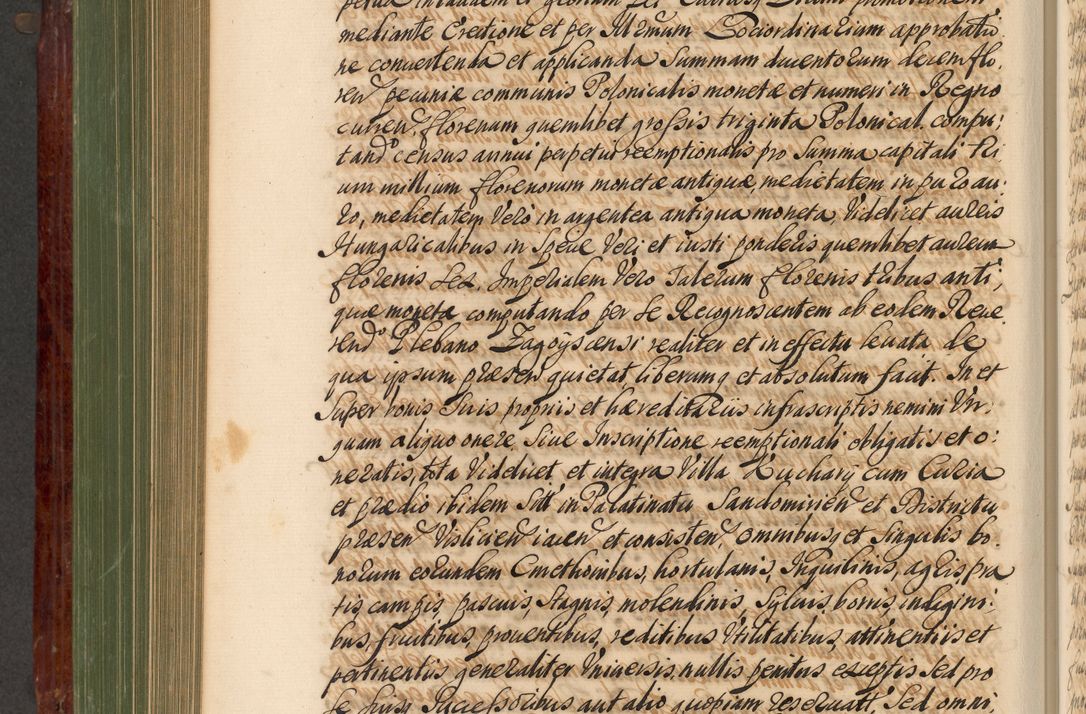 mediante Erectione et per Illmum Loci ordinarium approbatio:
ne convertenda et applicanda Summam ducentorum decem flo,
ren pecuniæ communis Polonicalis monetæ et numeri in Regno
curren. florenum quemlibet grossis triginta Polonical. compu:
tand census annui perpetui reemptionalis pro Summa capitali tri
um millium florenorum monetæ antiquæ, medietatem in puro au:
ro, medietatem Vero in argentea antiqua moneta, Videlicet aureis
Hungaricalibus in Specie Veri et iusti ponderis quemlibet aureum
florenis sex, Imperialem Vero Talerum florenis tribus anti,
quæ monetæ computando per se Recognoscentem ab eodem Reve,
rend Plebano Zagoyscensi realiter et in effectu levata de
qua ipsum præsen quietat, liberumq et absolutum facit. In et
Super bonis Suis propriis et hæreditariis infrascriptis nemini Un,
quam aliquo onere Sive Inscriptione reemptionali obligatis et o:
neratis, tota Videlicet et integra Villa Kuchary cum Curia
et prædio ibidem Sitt in Palatinatu Sandomirien et Districtu
præsen Visliciens iacen et consisten, omnibusq et Singulis bo,
norum eorundem Cmethonibus, hortulanis, Inquilinis, agris, pra
tis, campis, pascuis, Stagnis, molendinis, Sylvis, borris, indigini:
bus, fructibus, proventibus, reditibus Utilitatibus, attinentiis et
pertinentiis generaliter Universis, nullis penitus exceptis Sed pro
se suisq Successoribus aut alio quopiam reservatt, Sed omni,